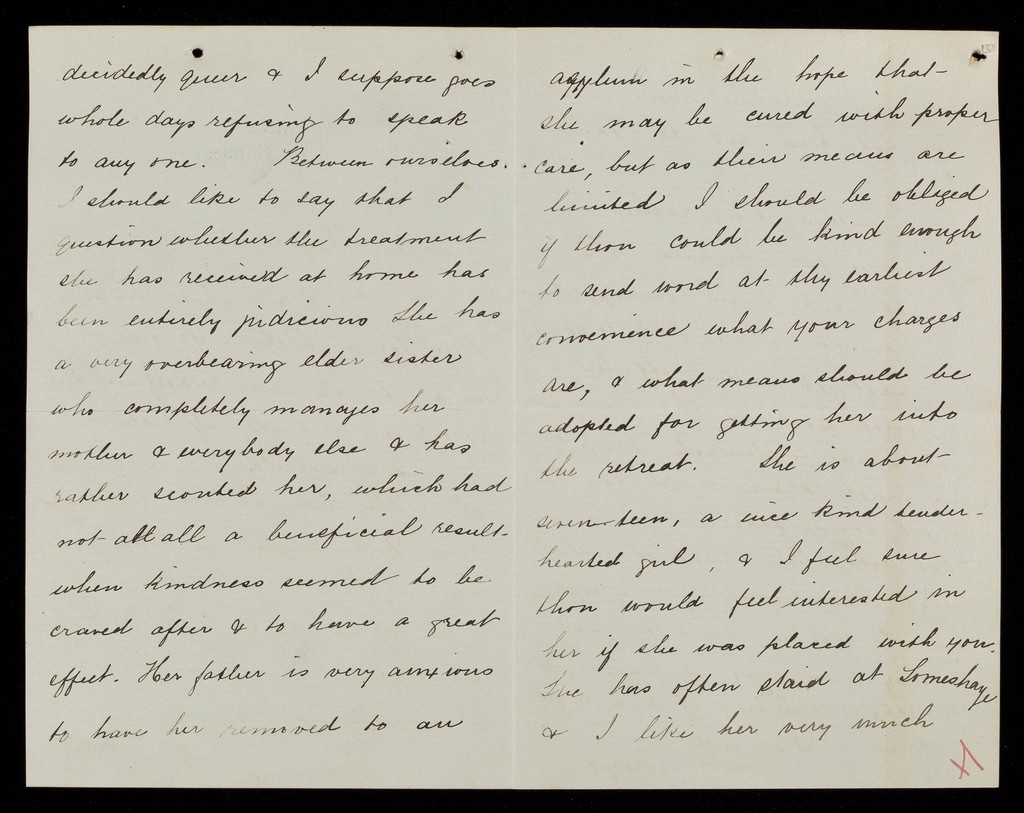 decidedly queer & I suppose goes
whole days refusing to speak
to any one. Between ourselves.
I should like to say that I
question whether the treatment
she has received at home has
been entirely judicious She has
a very overbearing elder sister
who completely manages her
mother & everybody else & has
rather scouted her, which had
not at all a beneficial result-
when kindness seemed to be
craved after & to have a great
effect. Her father is very anxious
to have her removed to an
asylum in the hope that-
she may be cured with proper
care, but as their means are
limited I should be obliged
if thou could be kind enough
to send word at thy earliest
convenience what your charges
are, & what means should be
adopted for getting her into
the retreat. She is about-
seven-teen, a nice kind tender-
hearted girl, & I feel sure
thou would feel interested in
her if she was placed with you.
She has often staid at Lomeshaye
& I like her very much